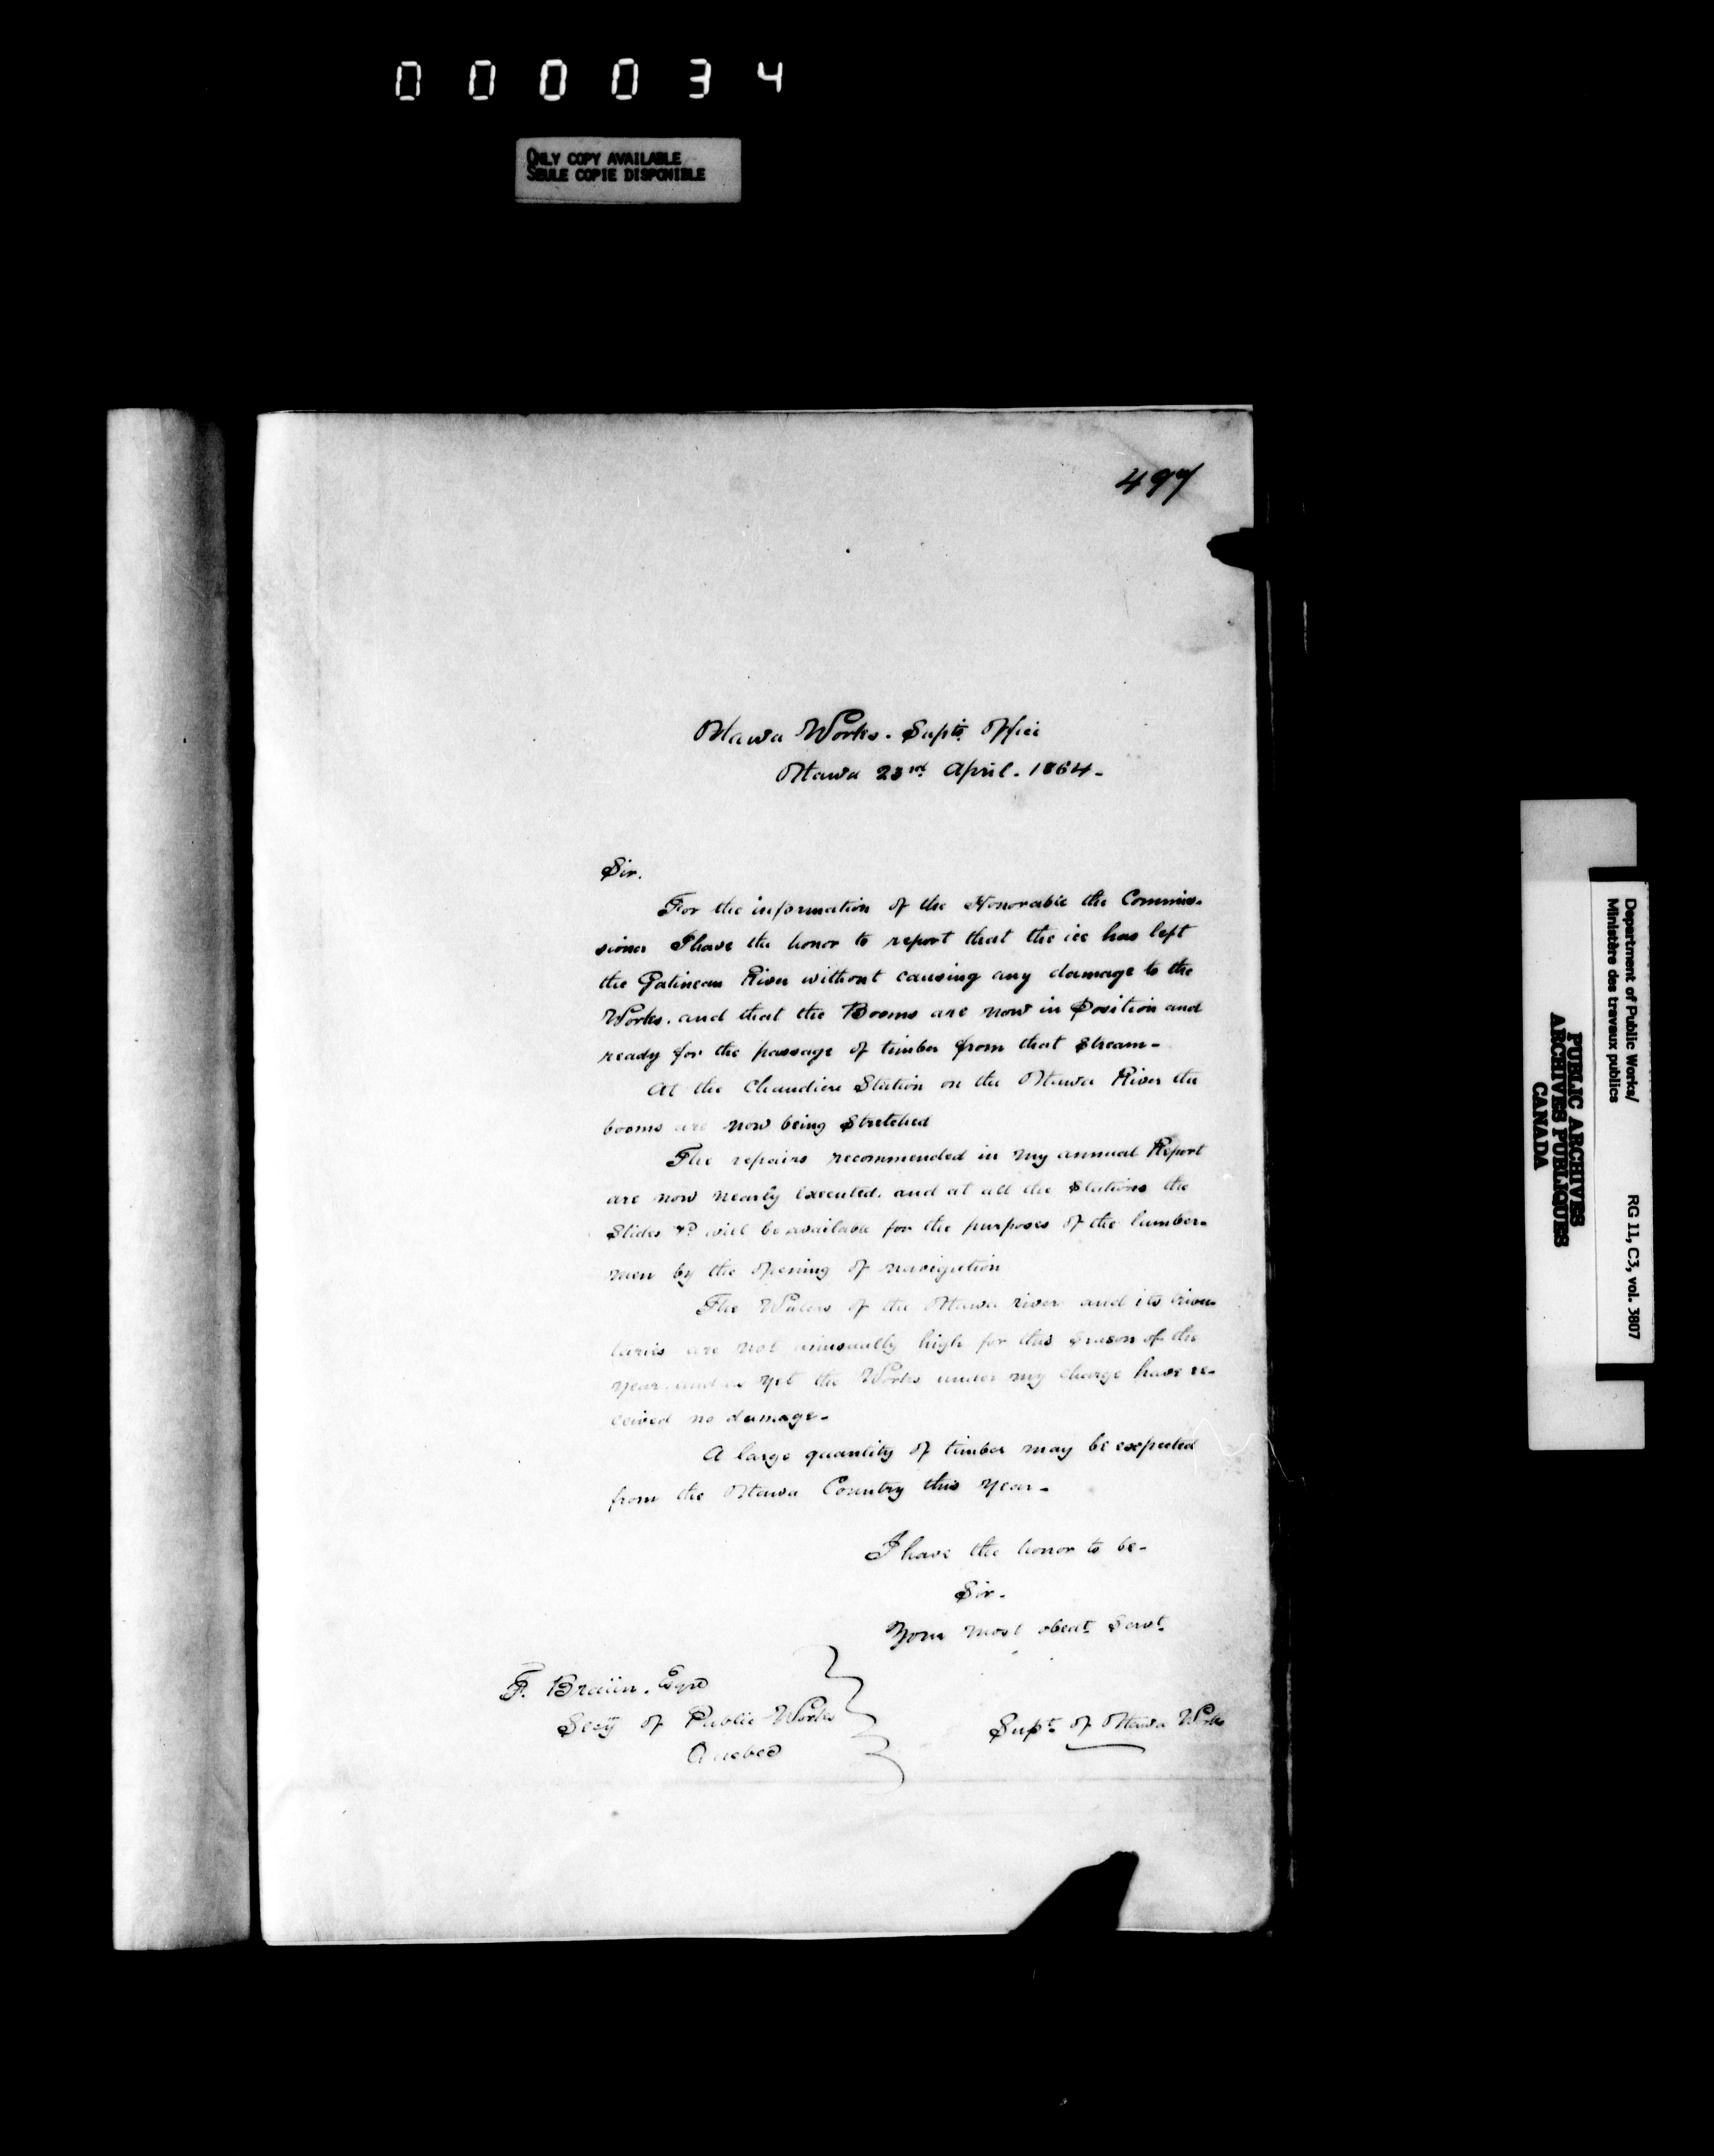 000034
ONLY COPY AVAILABLE
SEULE COPIE DISPONIBLE
497
Ottawa Works. Supts. Office
Ottawa 23rd April. 1864.
Sir.
For the information of the Honorable the Commis-
sioner I have the honor to report that the ice has left
the Gatineau River without causing any damage to the
Works. and that the Booms are now in Position and
ready for the passage of timber from that Stream-
At the Chaudiere Station on the Ottawa River the
booms are now being Stretched
The repairs recommended in my annual Report
are now nearly executed. and at all the Stations the
Slides &c will be available for the purposes of the lumber-
men by the opening of navigation
The Waters of the Ottawa river and its tribu-
taries are not unusually high for this Season of the
Year, and as yet the Works under my charge have re-
ceived no damage-
A large quantity of timber may be expected
from the Ottawa Country this Year-
I have the honor to be-
Sir.
Your most obedt. Servt.
F. Braün. Esqre
Secy of Public Works
Quebec
Supt. of Ottawa Works
Department of Public Works/
Ministère des travaux publics
RG 11, C3, vol. 3807
PUBLIC ARCHIVES
ARCHIVES PUBLIQUES
CANADA